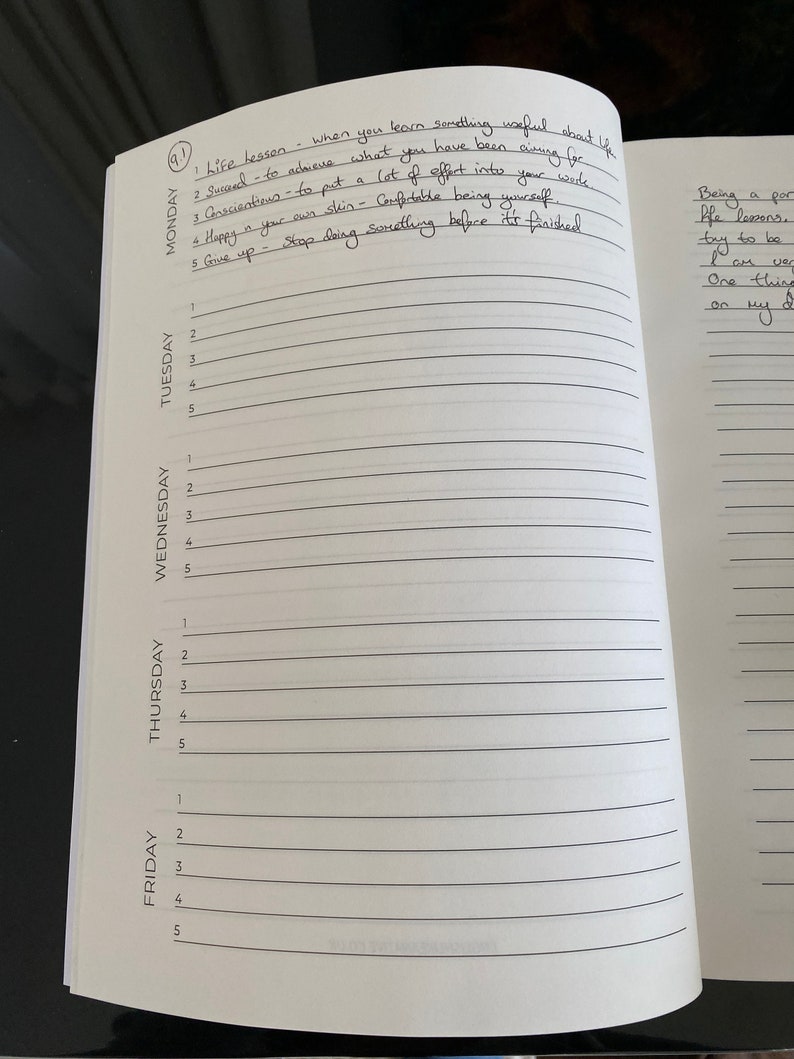 9.1
MONDAY
1 Life Lesson - when you learn something useful about life
2 Succeed - to achieve what you have been aiming for
3 Conscientious - to put a lot of effort into your work.
4 Happy n your own skin - Comfortable being yourself.
5 Give up - Stop doing something before it's finished
TUESDAY
1
2
3
4
5
WEDNESDAY
1
2
3
4
5
THURSDAY
1
2
3
4
5
FRIDAY
1
2
3
4
5
Being a par
life lessons.
try to be
I am ver
One thing
on my d